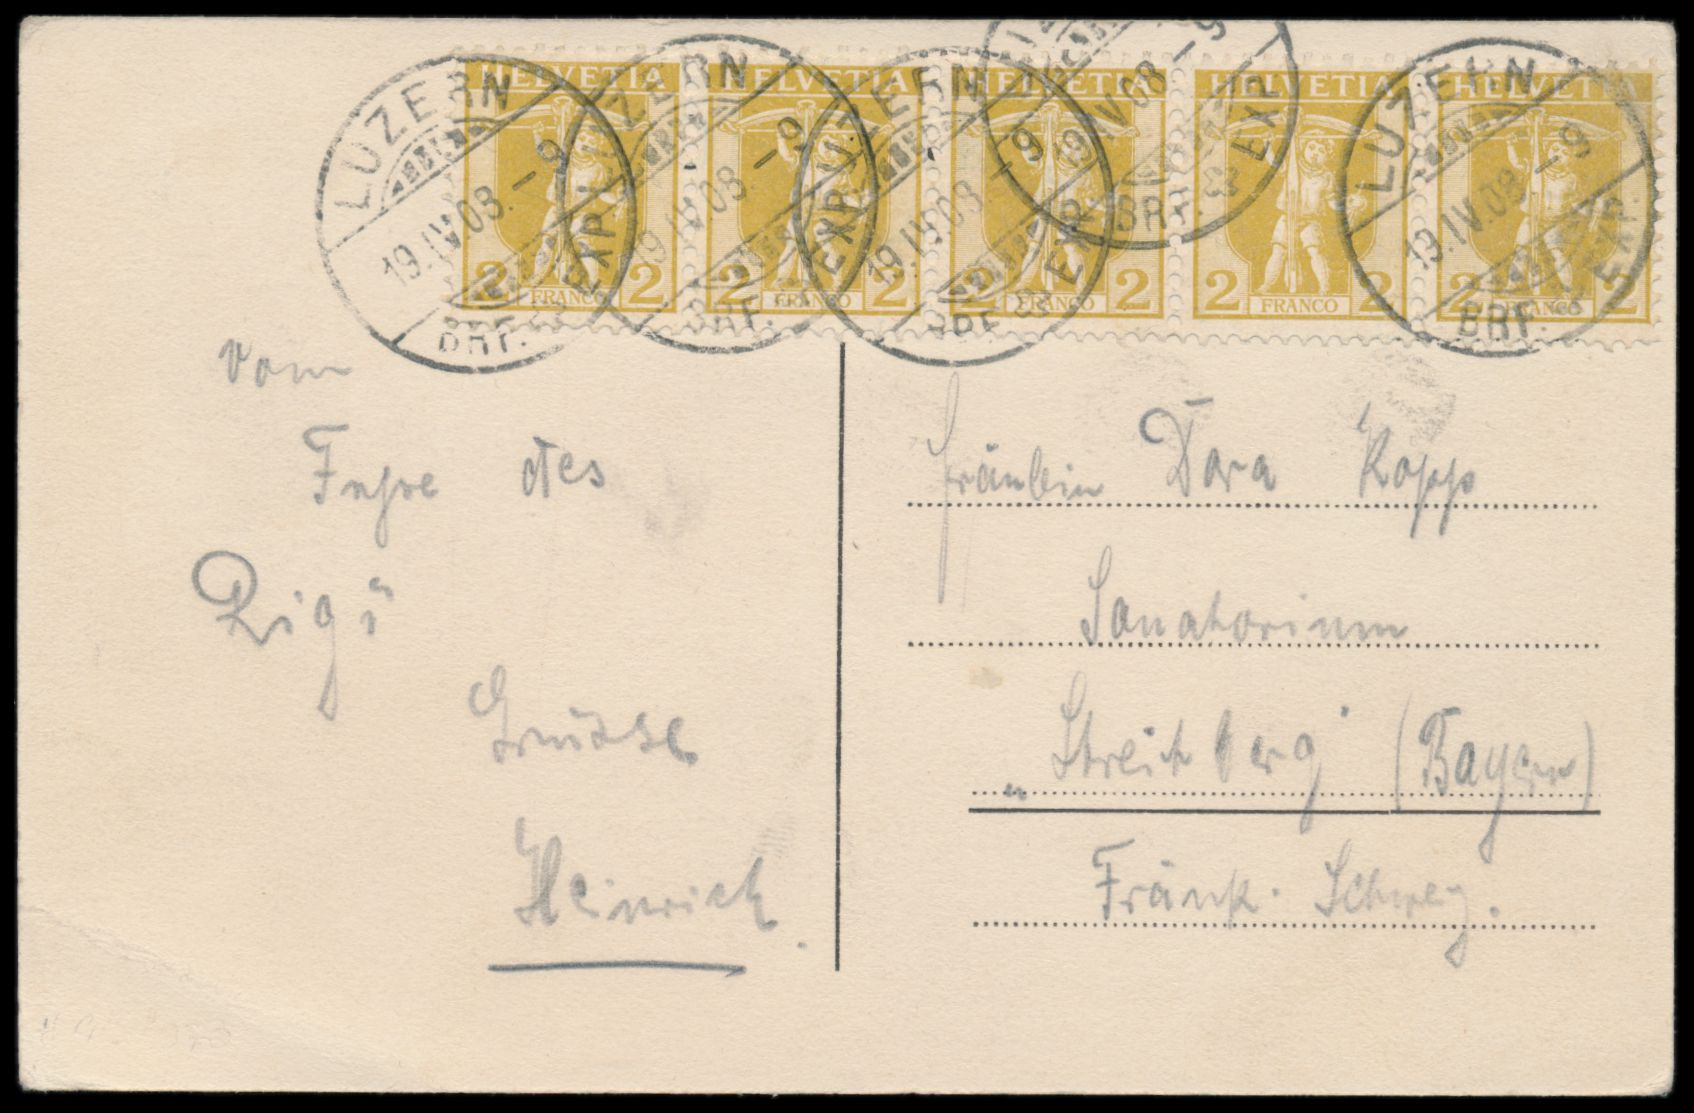 HELVETIA HELVETIA HELVETIA HELVETIA HELVETIA
2 FRANCO 2 2 FRANCO 2 2 FRANCO 2 2 FRANCO 2 2 FRANCO 2
LUZERN
19.IV.08.-9
BRF. EXP.
LUZERN
19.IV.08.-9
BRF. EXP.
LUZERN
19.IV.08.-9
BRF. EXP.
19.IV.08-9
BRF. EXP.
LUZERN
19.IV.08.-9
BRF. EXP.
vom
Fusse des
Rigi
Grüsse
Heinrich.
Fräulein Dora Kopp
Sanatorium
"Streitberg" (Bayern)
Fränk. Schweiz.